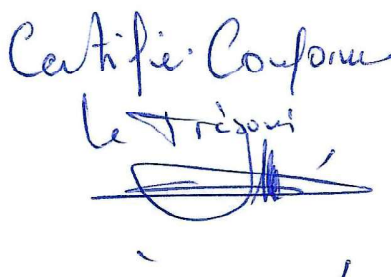 Certifié Conforme
Le Trésorier